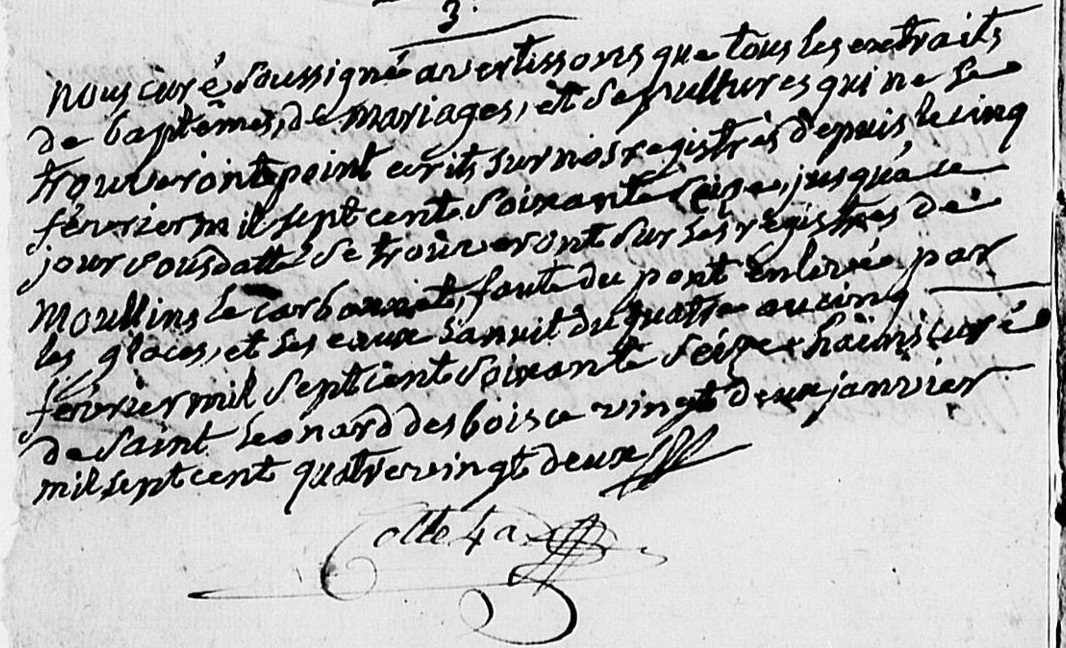 3.
nous curé soussigné avertissons que tous les extraits
de baptêmes, de mariages, et sepultures qui ne se
trouveront point ecrits sur nos registres depuis le cinq
fevrier mil sept cent soixante seize jusqu'à ce
jour sousdatté se trouveront sur les registres de
moullins le carbonnet, faute du pont enlevée par
les glaces, et les eaux la nuit du quatre au cinq
fevrier mil sept cent soixante seize curé
de saint Leonard des bois ce vingt deux janvier
mil sept cent quatre vingt deux
Cotte 4 a